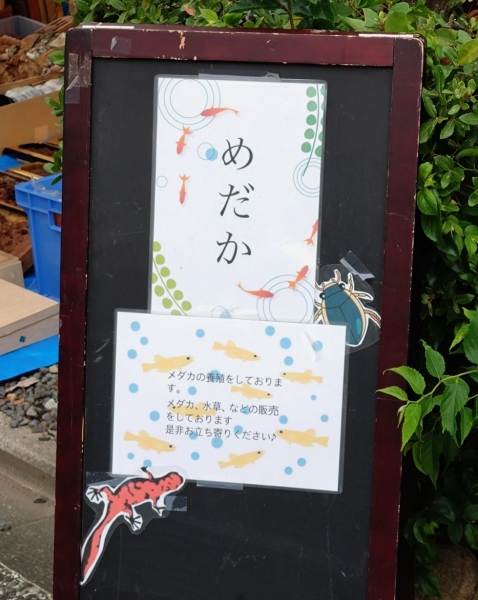 めだか
メダカの養殖をしておりま
す。
メダカ、水草、などの販売
をしております
是非お立ち寄りください♪